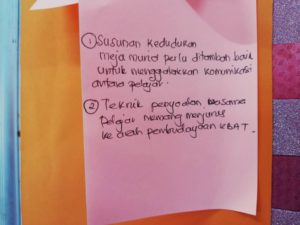 ① Susunan kedudukan
meja murid perlu ditambah baik
untuk menggalakkan komunikasi
antara pelajar.
② Teknik penyoalan bersama
pelajar memang menjurus
ke arah pembudayaan KBAT.